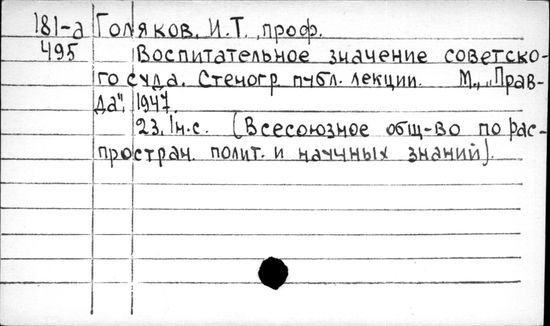 181-а Голяков, И.Т., проф.
495 Воспитательное значение советско-
го суда. Стеногр. публ. лекции. М., „Прав-
да", 1947.
23, 1н.с. (Всесоюзное общ-во по рас-
простран. полит. и научных знаний).